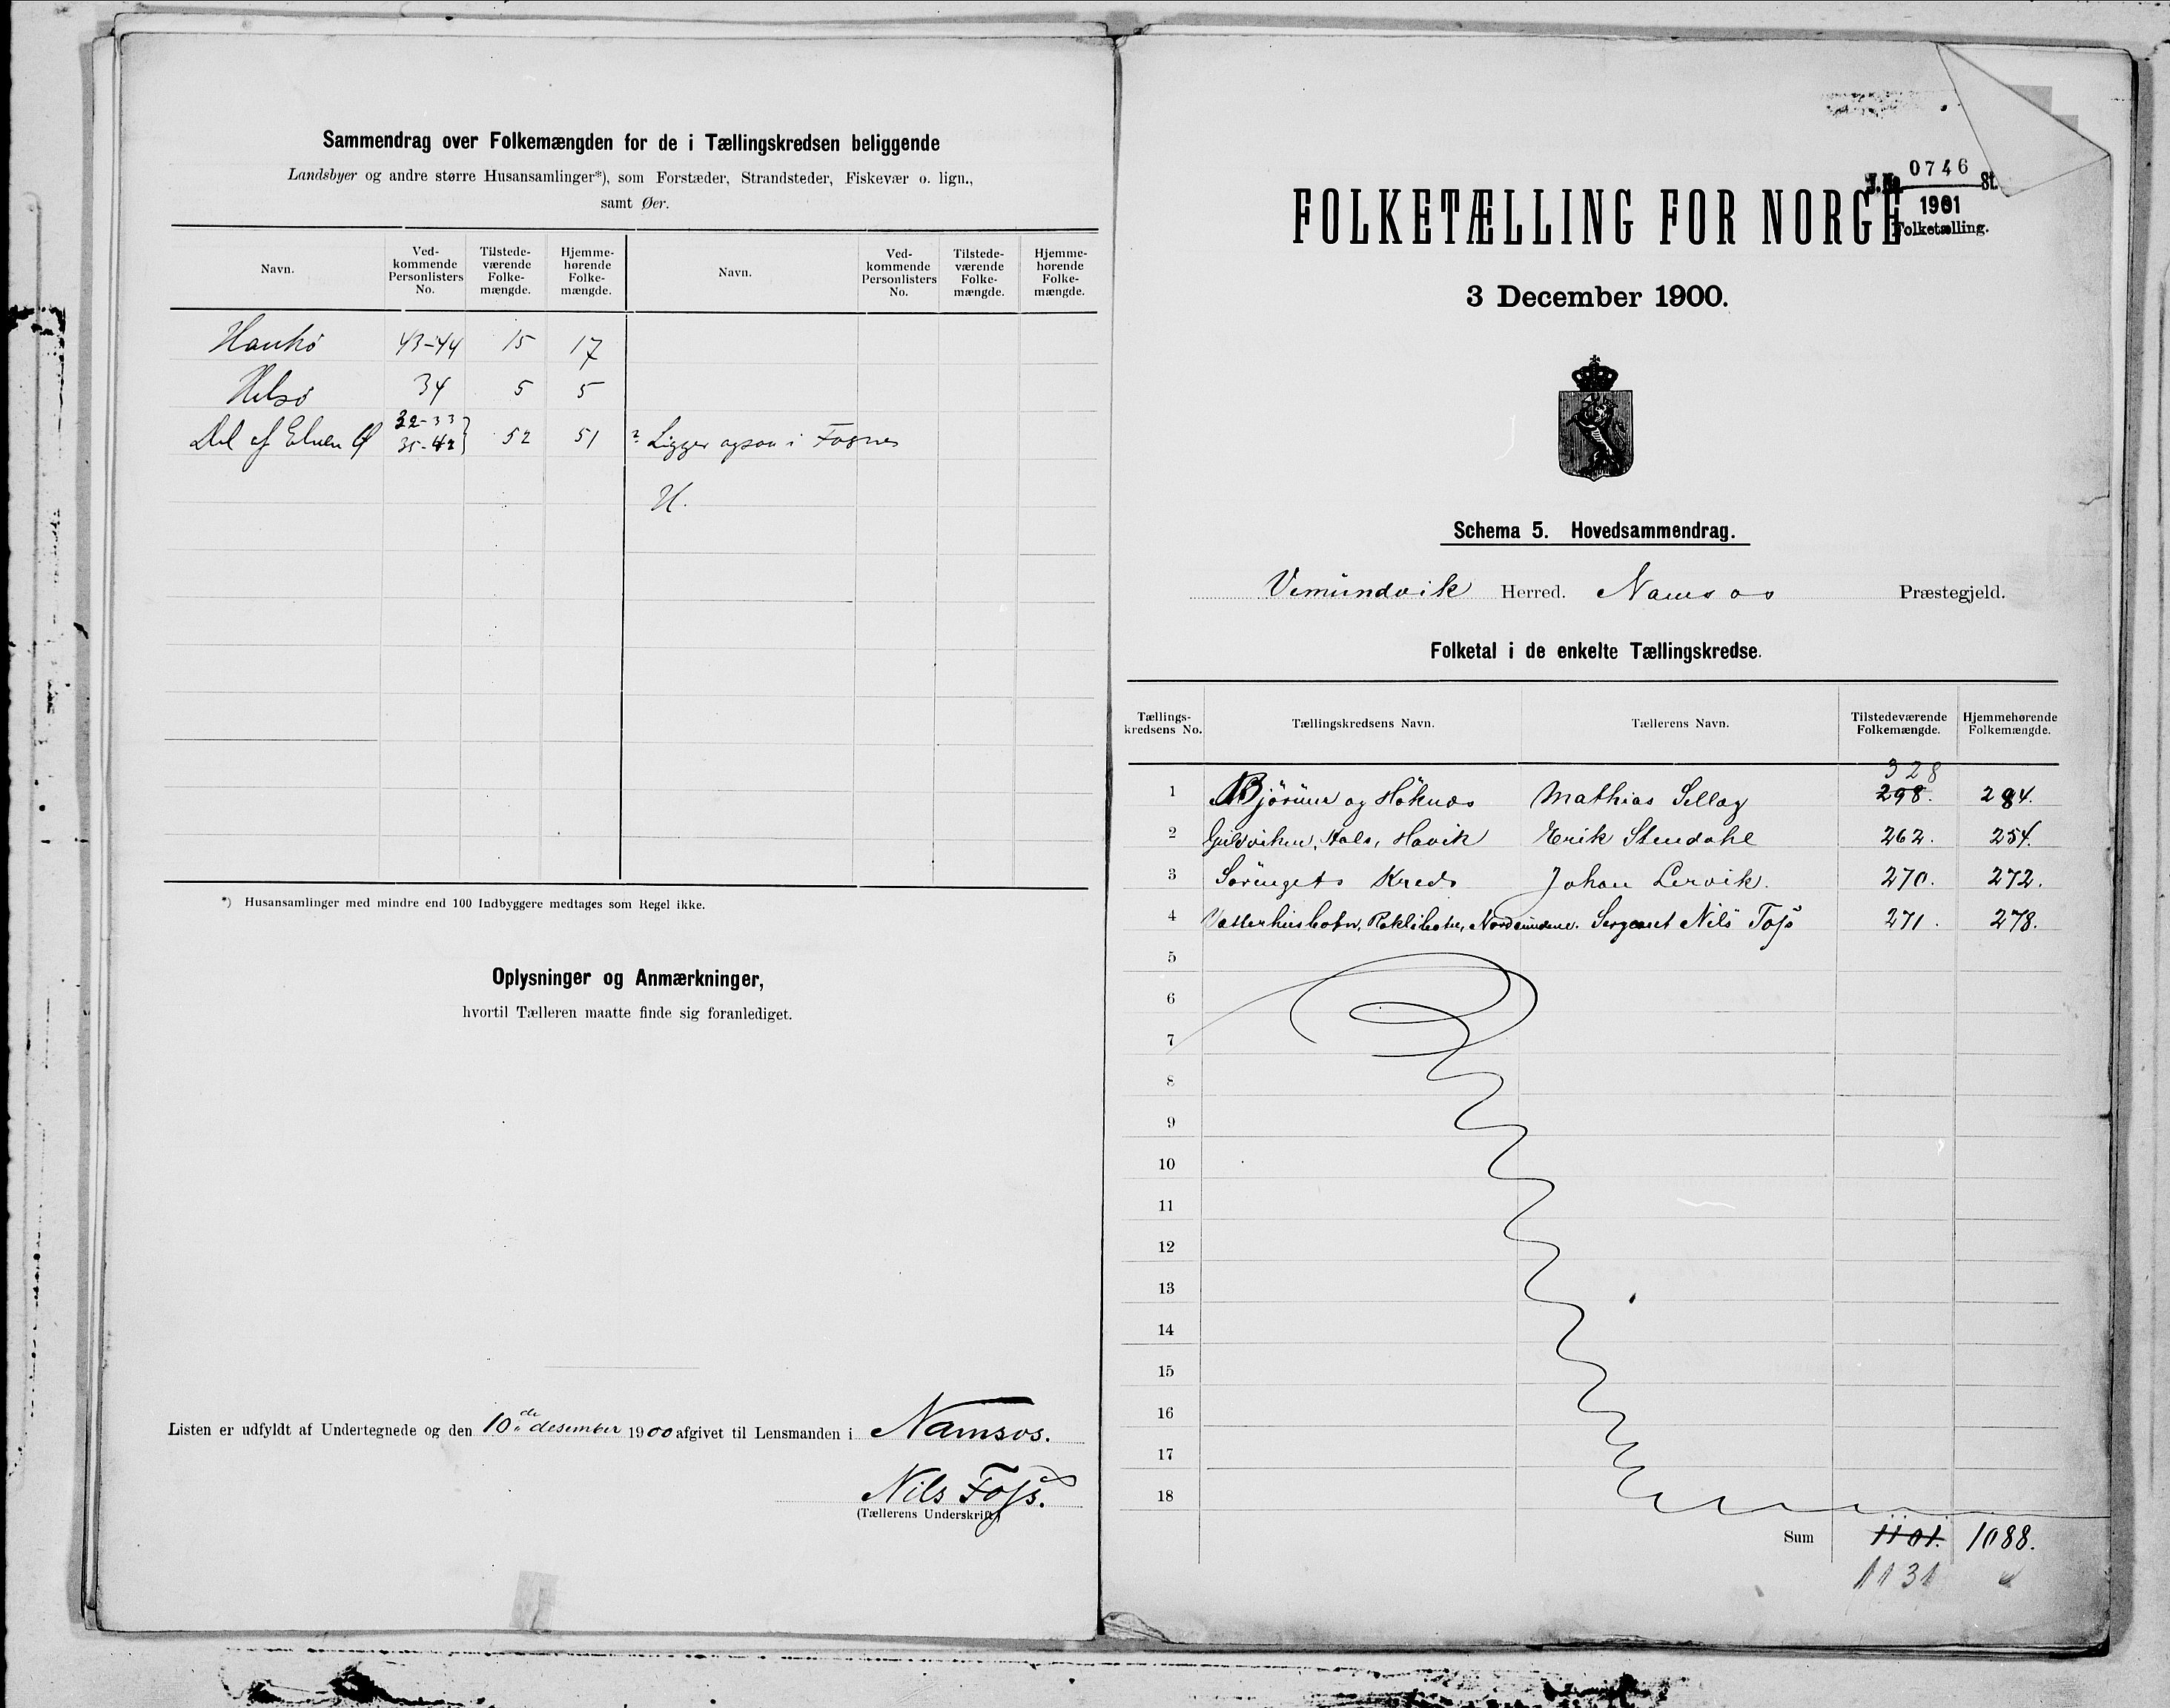 Sammendrag over Folkemængden for de i Tællingskredsen beliggende
Landsbyer og andre større Husansamlinger*), som Forstæder, Strandsteder, Fiskevær o. lign.,
samt Øer.
Navn. Ved-kommende Personlisters No. Tilstede-værende Folke-mængde. Hjemme-hørende Folke-mængde. Navn. Ved-kommende Personlisters No. Tilstede-værende Folke-mængde. Hjemme-hørende Folke-mængde.
43-44 15 17
34 5 5
32-33
Del af Elven Ø 35-42 52 51 Ligger ogsaa i Fosnes
H.
*) Husansamlinger med mindre end 100 Indbyggere medtages som Regel ikke.
Oplysninger og Anmærkninger,
hvortil Tælleren maatte finde sig foranlediget.
Listen er udfyldt af Undertegnede og den 10de desember 1900 afgivet til Lensmanden i Namsos.
Nils Foss.
(Tællerens Underskrift)
0746
J.No. St.
1901
Folketælling.
FOLKETÆLLING FOR NORGE
3 December 1900.
Schema 5. Hovedsammendrag.
Vemundvik Herred. Namsos Præstegjeld.
Folketal i de enkelte Tællingskredse.
Tællings-kredsens No. Tællingskredsens Navn. Tællerens Navn. Tilstedeværende Folkemængde. Hjemmehørende Folkemængde.
328
1 og Høknes Mathias Sellæg 298. 284.
2 Hals, Havik Erik Stendahl 262. 254.
3 Kreds Johan Lervik. 270. 272.
4 Sergeant Nils Foss 271. 278.
5
6
7
8
9
10
11
12
13
14
15
16
17
18
Sum 1101. 1088.
1131